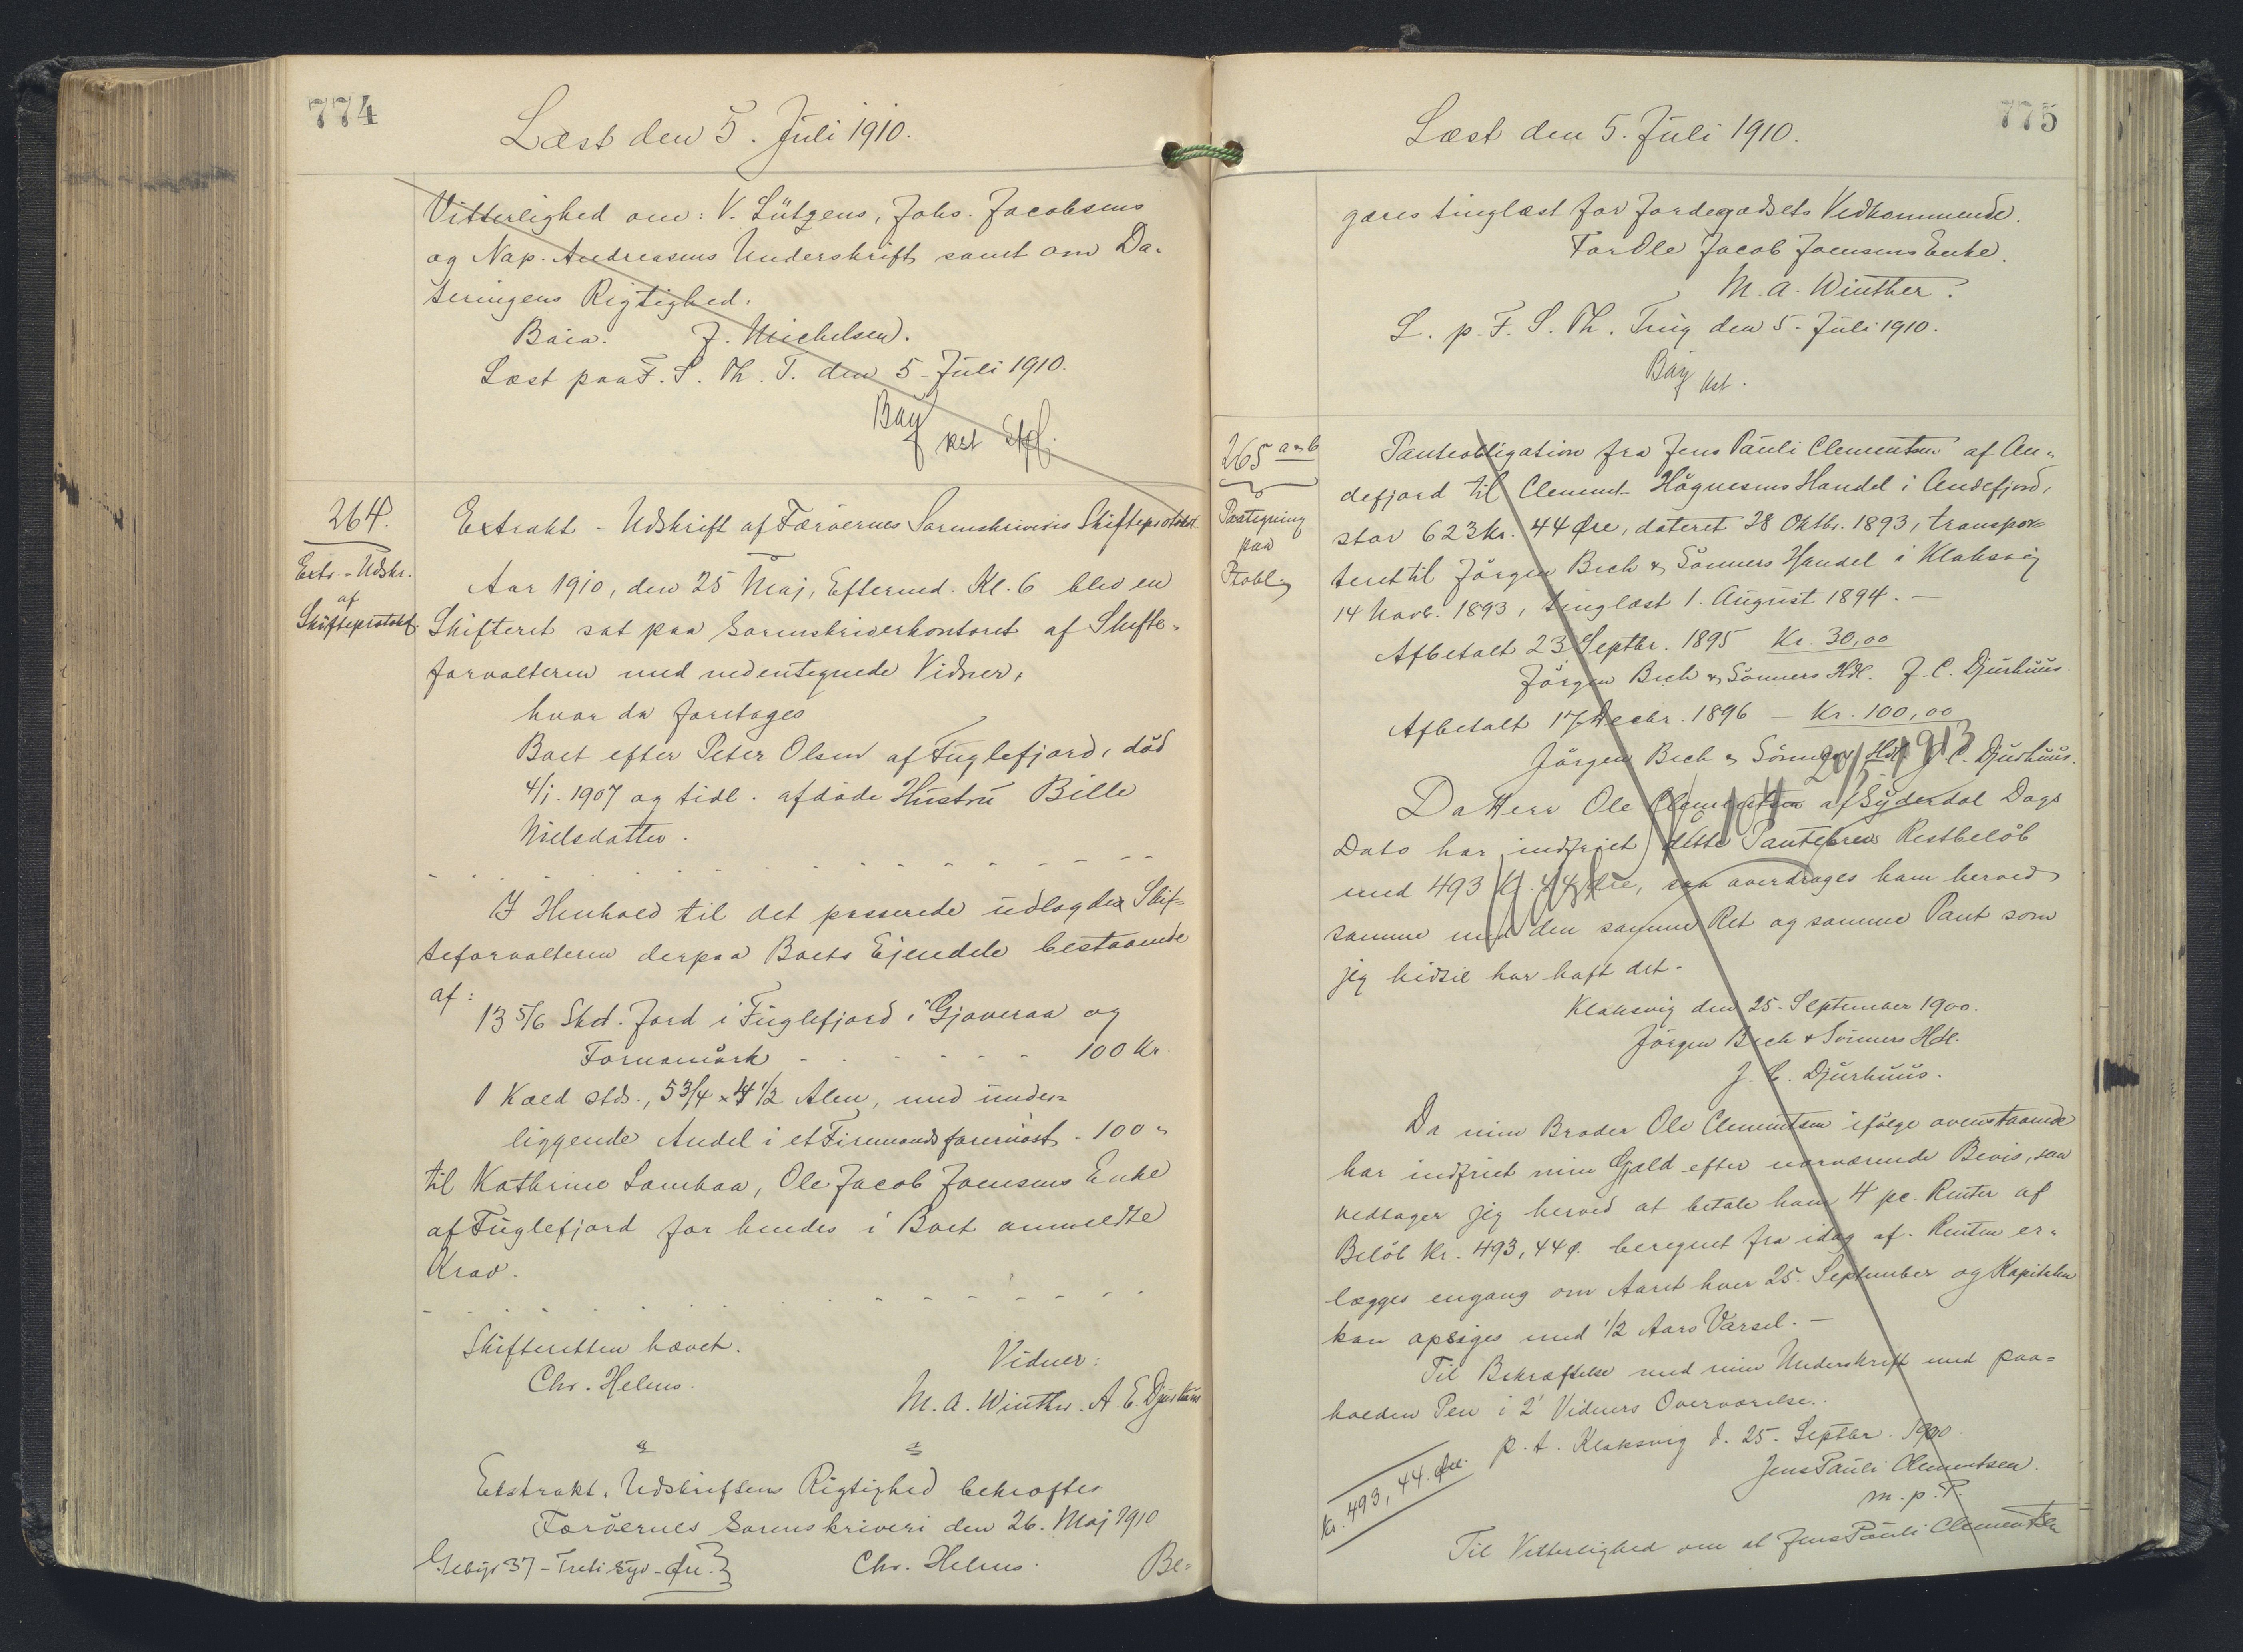 774
Læst den 5. Juli 1910.
Vitterlighed om: V. Lützens, Johs. Jacobsens
og Nap. Andreasens Underskrift samt om Da-
teringens Rigtighed.
Baia. J. Michelsen.
Læst paa F. S. Th. T. den 5. Juli 1910.
Bay
kst
264.
Extr.-Udskr.
af
Skifteprotokol.
Extrakt-Udskrift af Færøernes Sorenskriveris Skifteprotokol.
Aar 1910, den 25 Maj, Eftermd. Kl. 6 blev en
Skifteret sat paa Sorenskriverkontoret af Skifte-
forvalteren med nedentegnede Vidner,
hvor da foretoges
Boet efter Peter Olsen af Fuglefjord, død
4/1. 1907 og tidl. afdøde Hustru Bille
Nielsdatter.
I Henhold til det passerede udlagdes Skif-
teforvalteren derpaa Boets Ejendele bestaaende
af:
13 5/6 Skd. Jord i Fuglefjord i Gjoveraa og
Fornamørk 100 Kr.
1 Kæld stds., 5 3/4 x 4 1/2 Alen, med under-
liggende Andel i et Firemandsfarernøst - 100 "
til Kathrine Lambaa, Ole Jacob Joensens Enke
af Fuglefjord for hendes i Boet anmeldte
Krav.
Skifteretten hævet.
Chr. Helms.
Vidner:
M. A. Winther. A. E. Djurhuus
Ekstrakt-Udskriftens Rigtighed bekræftes
Færøernes Sorenskriveri den 26. Maj 1910
Gebyr 37 - Treti syv - Øre.
Chr. Helms.
Be-
775
Læst den 5. Juli 1910.
gæres tinglæst for Jordegodsets Vedkommende.
For Ole Jacob Joensens Enke.
M. A. Winther.
L. p. F. S. Th. Ting den 5. Juli 1910.
Bay
kst.
265 a-b
Paategning
paa
Ptobl.
Panteobligation fra Jens Pauli Clementsen af An-
defjord til Clement Høgnesens Handel i Andefjord,
stor 623 kr. 44 Øre, dateret 28 Oktbr. 1893, transpor-
teret til Jörgen Bech & Sönners Handel i Klaksvig
14 Novb. 1893, tinglæst 1. August 1894. -
Afbetalt 23 Septbr. 1895 Kr. 30,00
Jörgen Bech & Sönners Hdl. J. C. Djurhuus.
Afbetalt 17 Decbr. 1896 - Kr. 100,00
Jörgen Bech & Sönners Hdl. J. C. Djurhuus.
Da Herr Ole Clementsen af Syderdal Dags
Dato har indfriet dette Pantebrevs Restbelöb
med 493 Kr. 44 Øre, saa overdrages ham herved
samme med den samme Ret og samme Pant som
jeg hidtil har haft det.
Klaksvig den 25. September 1900.
Jörgen Bech & Sönners Hdl.
J. C. Djurhuus.
Da min Broder Ole Clementsen ifölge ovenstaaende
har indfriet min Gjæld efter nærværende Bevis, saa
vedtager jeg herved at betale ham 4 pc. Renter af
Belöb Kr. 493,44 ø. beregnet fra idag af. Renten er-
lægges engang om Aaret hver 25. September og Kapitalen
kan opsiges med 1/2 Aars Varsel. -
Til Bekræftelse med min Underskrift med paa-
holden Pen i 2 Vidners Overværelse.
p. t. Klaksvig d. 25. Septbr. 1900.
Kr. 493,44. Øre.
Jens Pauli Clementsen.
m. p. P.
Til Vitterlighed om at Jens Pauli Clementsen